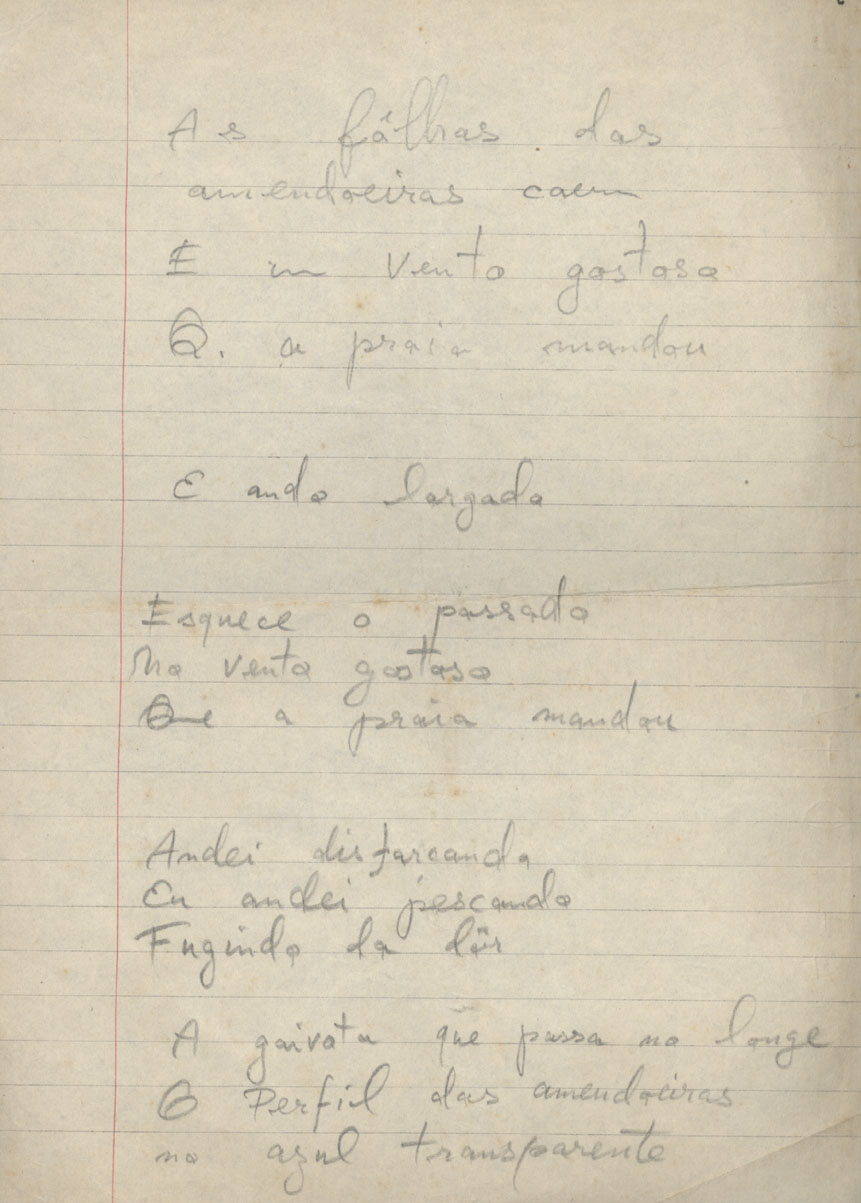 As fôlhas das
amendoeiras caem
E um vento gostoso
Q. a praia mandou
E ando largado
Esquece o passado
No vento gostoso
Que a praia mandou
Andei disfarcando
Eu andei pescando
Fugindo da dôr
A gaivota que passa no longe
O Perfil das amendoeiras
no azul transparente